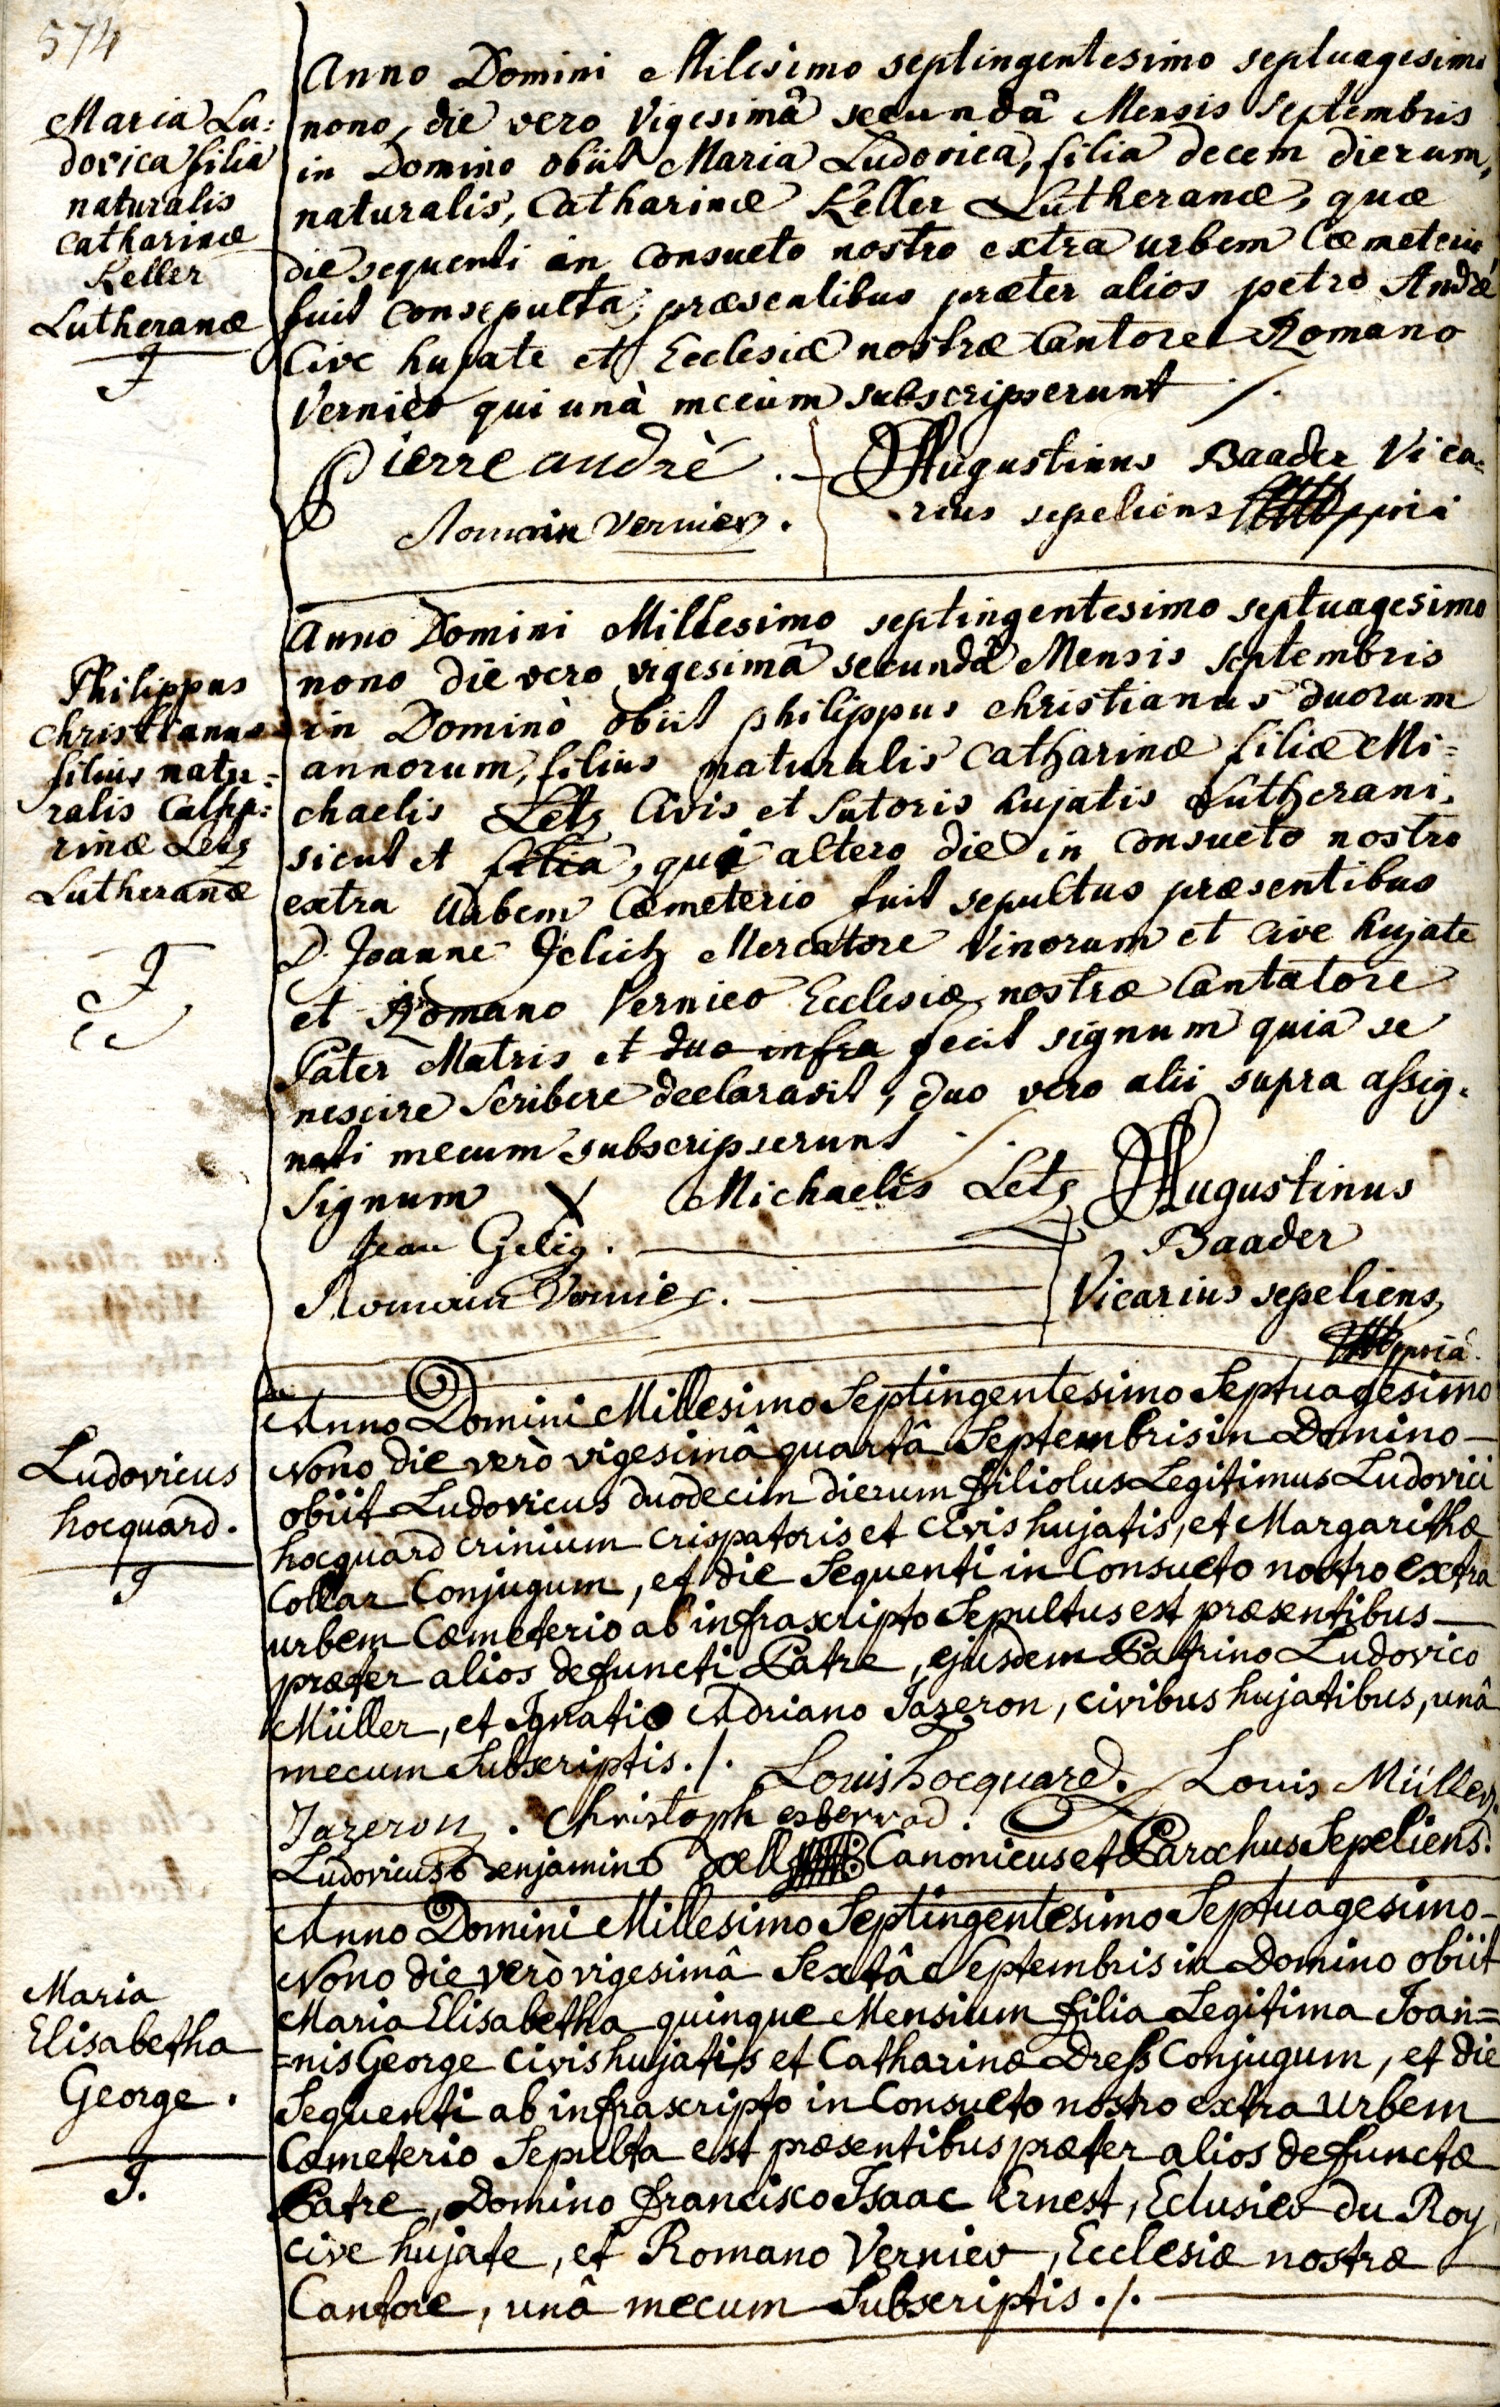 574
Maria Lu:
dovica filia
naturalis
Catharinæ
Keller
Lutheranæ
Anno Domini Milesimo septingentesimo septuagesimo
nono, die vero Vigesimâ secundâ Mensis Septembris
in Domino obiit Maria Ludovica, filia decem dierum,
naturalis, Catharinæ Keller Lutheranæ, quæ
die sequenti in Consueto nostro extra urbem Cœmeterio
fuit Consepulta; præsentibus præter alios petro André
Cive hujate et Ecclesiæ nostræ Cantore Romano
Vernier qui unà mecum subscripserunt ./.
Pierre andrè .
Augustinus Baader Vica=
Romain Vernier .
rius sepeliens ppria
Philippus
Christianus
filius natu=
ralis Catha=
rinæ Letz
Lutheranæ
Anno Domini Millesimo septingentesimo septuagesimo
nono die vero vigesimâ secundâ Mensis Septembris
in Domino obiit philippus christianus duorum
annorum, filius naturalis Catharinæ filiæ Mi=
chaelis Letz Civis et Sutoris hujatis Lutherani.
sicut et filia, qui altero die in Consueto nostro
extra Urbem Cœmeterio fuit sepultus præsentibus
D. Joanne Jelich Mercatore Vinorum et Cive hujate
et Romano Vernier Ecclesiæ nostræ Cantatore
Pater Matris et duo infra fecit signum quia se
nescire Scribere declaravit, duo vero alii supra assig=
nati mecum subscripserunt ./.
Signum X Michaelis Letz
Augustinus
Jean Gelig .
Baader
Romain Vernier .
Vicarius sepeliens,
ppriâ.
Ludovicus
hocquard.
Anno Domini Millesimo Septingentesimo Septuagesimo
Nono die verò vigesimâ quartâ Septembris in Domino
obiit Ludovicus duodecim dierum filiolus Legitimus Ludovici
hocquard crinium crispatoris et civis hujatis, et Margarithæ
Collar Conjugum, et die Sequenti in Consueto nostro extra
urbem Cœmeterio ab infrascripto Sepultus est præsentibus
præter alios defuncti Patre, ejusdem Patrino Ludovico
Müller, et Ignatio Adriano Jazeron, civibus hujatibus, unâ
mecum Subscriptis ./. Louis hocquard. Louis Müller.
Jazeron . Christoph
Ludovicus Benjamin Canonicus et Parochus Sepeliens.
Maria
Elisabetha
George .
Anno Domini Millesimo Septingentesimo Septuagesimo
Nono die verò vigesimâ Sextâ Septembris in Domino obiit
Maria Elisabetha quinque Mensium filia Legitima Joan=
=nis George civis hujatis et Catharinæ Dress Conjugum, et die
Sequenti ab infrascripto in Consueto nostro extra urbem
Cœmeterio Sepulta est præsentibus præter alios defunctæ
Patre, Domino francisco Isaac Ernest, Eclusier du Roy,
cive hujate, et Romano Vernier, Ecclesiæ nostræ
Cantore, unâ mecum Subscriptis ./.